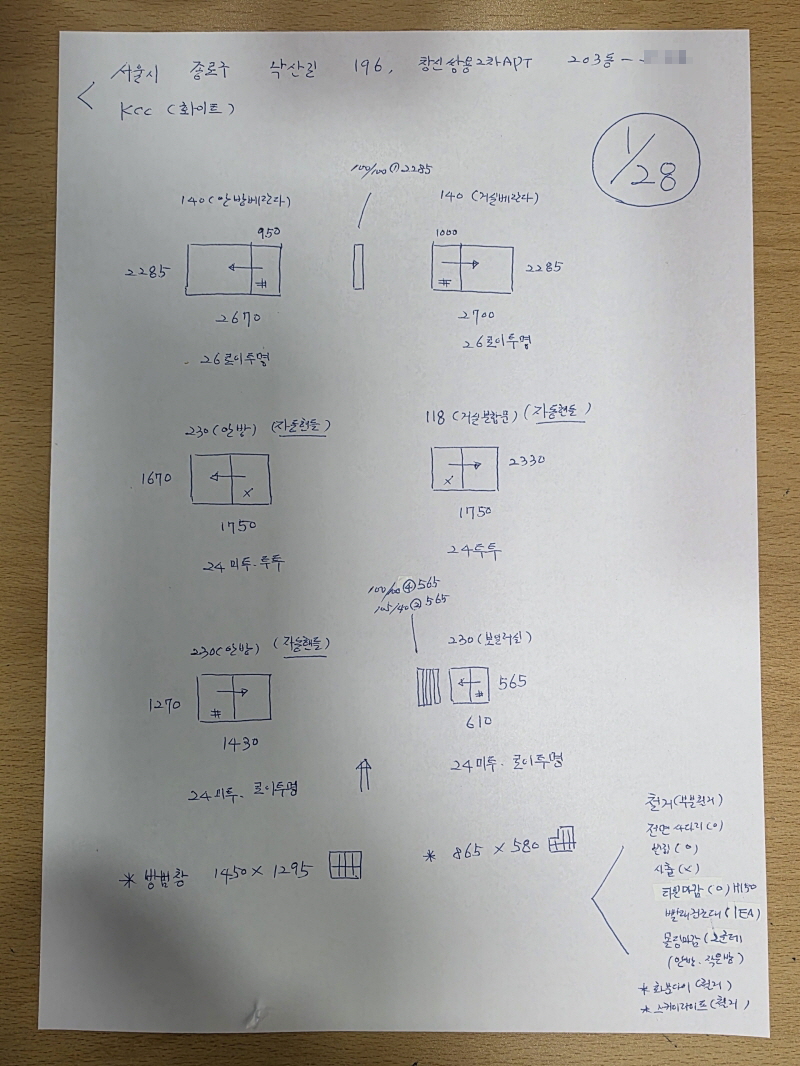 서울시 종로구 낙산길 196, 창신쌍용2차APT 203동 -
KCC (화이트)
1/28
100/100 ① 2285
140 (안방베란다)
950
2285
#
2670
26로이투명
140 (거실베란다)
1000
2285
#
2700
26로이투명
230 (안방) (자동핸들)
1670
x
1750
24미투.투투
118 (거실분합문) (자동핸들)
2330
x
1750
24투투
100/100 ④ 565
105/40 ② 565
230 (안방) (자동핸들)
1270
#
1430
24미투. 로이투명
230 (보일러실)
565
#
610
24미투. 로이투명
* 방범창 1450 x 1295
* 865 x 580
철거 (부분철거)
전면 사다리 (O)
반입 (O)
사춤 (x)
타원마감 (O) H150
빨래건조대 (1EA)
몰딩마감
(안방. 작은방)
* 화분다이 (철거)
* 스카이라이프 (철거)